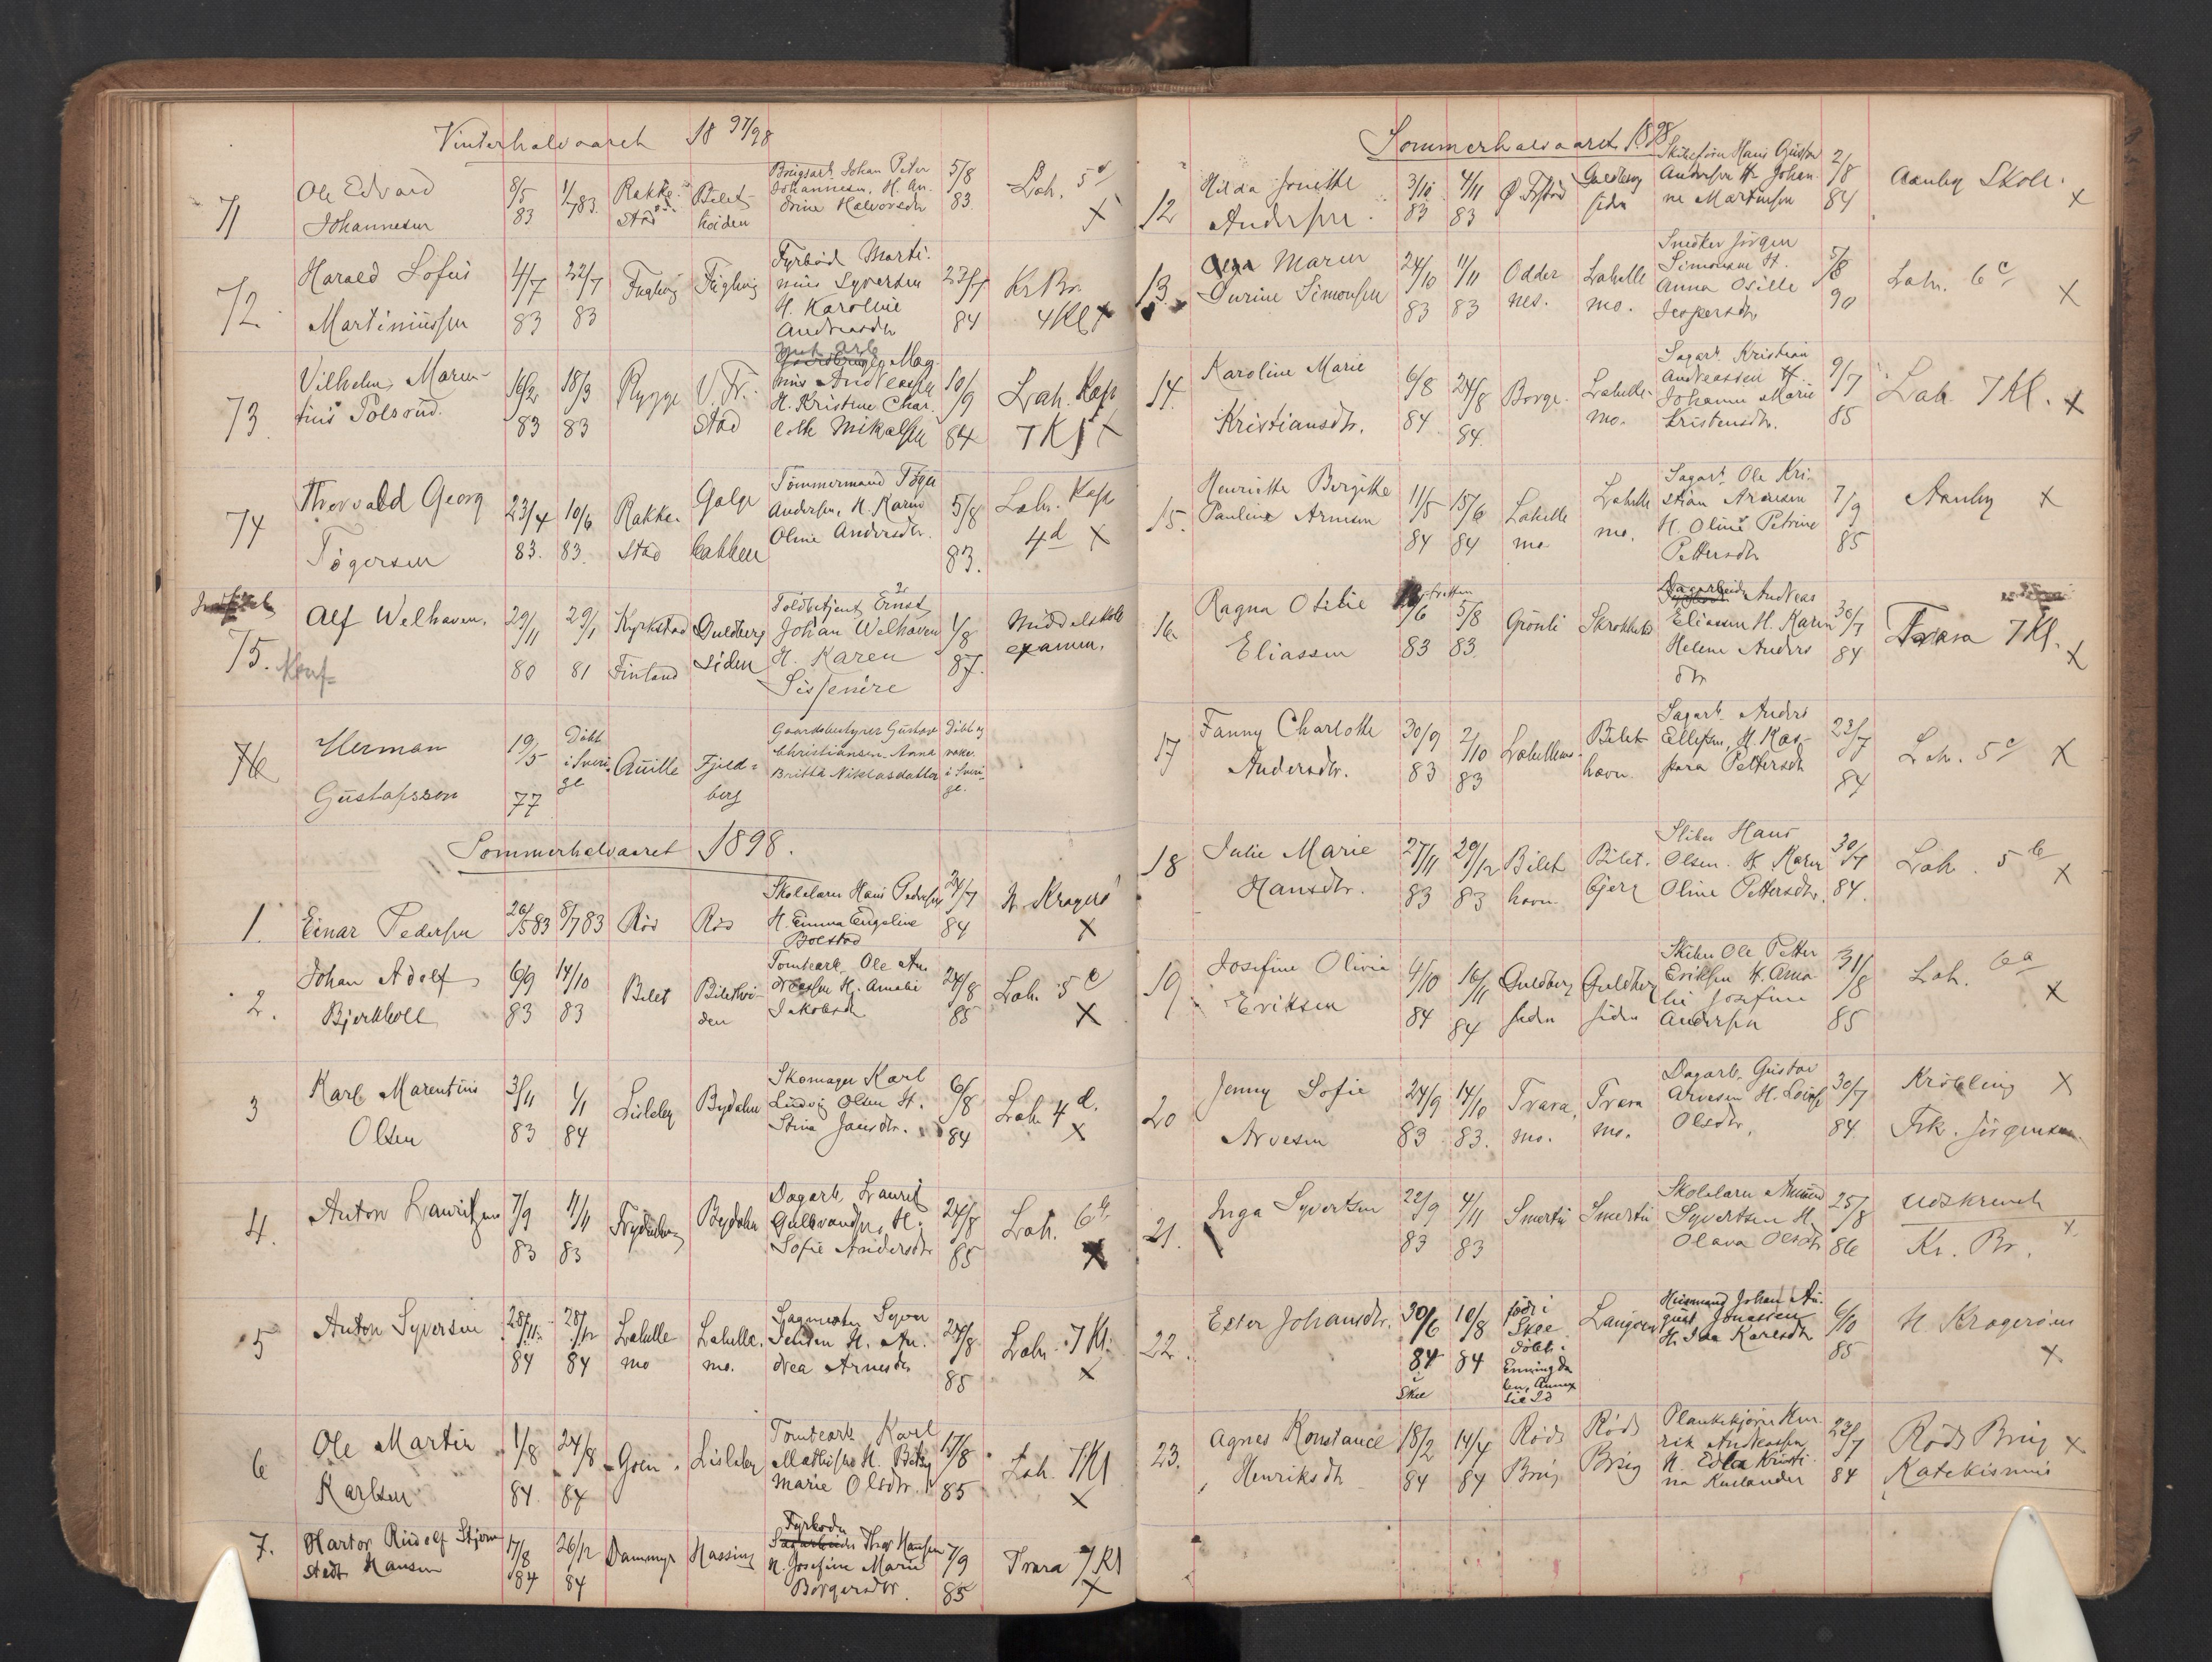 Vinterhalvaaret 18 97/98
71 Ole Edvard Johannesen 8/5 83 1/7 83 Rakkestad Bilet höiden Brugsarb. Johan Peter Johannesen, H. Andrine Halvorsdtr 5/8 83 Lah. 5 X
72 Harald Sofus Martiniussen 4/7 83 22/7 83 Fuglevig Fuglevig Fyrböd Martinius Syversen H. Karoline Andreasdtr 23/7 84 Kr Br. 4 Kl X
73 Vilhelm Marentius Polsrud 16/2 83 18/3 83 Rygge V. Fr.stad Magnus Andreassen H. Kristine Charlotte Mikalsen 10/9 84 Lah. Kap 7 Kl X
74 Thorvald Georg Tögersen 23/4 83. 10/6 83. Rakkestad Galgebakken Tömmermand Töger Andersen, H. Karen Oline Andersdtr. 5/8 83. Lah. Kap 4d X
75. Konf. Alf Welhaven. 29/11 80 29/1 81 Kyrkstad Finland Guldbergsiden Toldbetjent Ernst Johan Welhaven H. Karen Sissenére 1/8 87. Middelskoleexamen.
76 Herman Gustafsson 19/5 77 Döbt i Sverige Aville Fjeldberg Gaardsbestyrer Gustav Christiansen Anna Britta Niklasdatter Döbt og vakc. i Sverige.
Sommerhalvaaret 1898.
1. Einar Pedersen 26/5 83 8/7 83 Röd Röd Skolelærer Hans Pedersen H. Emma Engeline Bolstad 24/7 84 N. Kragerö X
2. Johan Adolf Bjerkholt 6/9 83 14/10 83 Bilet Bilethöiden Tomtearb. Ole Andreassen H. Amalie Jakobsd 24/8 85 Lah. 5 c X
3 Karl Marentius Olsen 3/11 83 1/1 84 Lisleby Bydalen Skomager Karl Ludvig Olsen H. Stina Jansdtr. 6/8 84 Lah. 4 d. X
4. Anton Lauritzen 7/9 83 11/11 83 Frydenberg Bydalen Dagarb. Laurits Gulbrandsen H. Sofie Andersdtr 24/8 85 Lah. 6 b X
5 Anton Syversen 28/11 84 28/12 84 Lahellemo Lahellemo. Sagmester Syver Jensen H. Andrea Arnesdtr 24/8 85 Lah. 7 Kl. X
6 Ole Martin Karlsen 1/8 84. 24/8 84 Goen Lisleby Tomtearb. Karl Mathisen H. Betsy Marie Olsdtr. 17/8 85 Lah. 7 Kl X
7. Hartor Rudolf Stjernstedt Hansen 17/8 84 26/12 84 Dammyr Hassing Fyrböder Thor Hansen H. Josefine Marie Borgersdtr. 7/9 85 Trara 7 Kl X
Sommerhalvaaret 1898
12 Hilda Jonette Andersen 3/10 83 4/11 83 Ø. Fr.stad Guldbergsiden Hans Gustav Andersen H. Johanne Martinsen 2/8 84 Aanby Skole. X
13. Olga Maren Durine Simonsen 24/10 83 11/11 83 Oddernes. Lahellemo. Snedker Jörgen Simonsen H. Anna Otilie Jespersdtr 5/8 90 Lah. 6 c X
14. Karoline Marie Kristiansdtr. 6/8 84 24/8 84. Borge Lahellemo. Sagarb. Kristian Andreassen H. Johanne Marie Kristensdtr. 9/7 85 Lah. 7 Kl. X
15. Henriette Bergitte Pauline Arnesen 11/5 84 15/6 84 Lahellemo Lahellemo. Sagarb. Ole Kristian Arnesen H. Oline Petrine Pettersdtr 7/9 85 Aanby X
16 Ragna Otilie Eliassen /6 83 5/8 83. Grönli Skrokkelid Dagarbeider Andreas Eliassen H. Karen Helene Andersdtr 30/7 84 Trara 7 Kl. X
17 Fanny Charlotte Andersdtr. 30/9 83 2/10 83 Bilethavn Sagarb. Anders Ellefsen, H. Kaspara Pettersdt 23/7 84 Lah. 5 c X
18 Julie Marie Hansdtr. 27/11 83 29/12 83 Bilethavn Biletbjerg Sliber Hans Olsen. H. Karen Oline Pettersdtr. 30/7 84. Lah. 5 b X
19. Josefine Olivia Eriksen 4/10 84 16/11 84 Guldbergsiden Guldbergsiden Ole Petter Eriksen H. Amalie Josefine Andersen 31/8 85 Lah. 6 a X
20 Jenny Sofie Arvesen 24/9 83 14/10 83. Traramo. Traramo. Dagarb. Gustav Arvesen H. Lovise Olsdtr. 30/7 84 Kröbling X Frk. Jörgensen.
21. Inga Syvertsen 22/9 83 4/11 83 Smertu Smertu Skolelærer Amund Syvertsen H. Olava Olsdtr 25/8 86 Udskrevet Kr. Br. X
22. Ester Johansdtr. 30/6 84 i Skee 10/8 84 födt i Skee döbt i Enningdalen, Annex til Id Langöen Husmand Johan August Jonassen H. Ida Karlsdtr 6/9 85 N. Kragerøens X
23. Agnes Konstance Henriksdtr 18/2 84 14/4 84 Röds Brug Röds Brug Plankekjörer Henrik Andreassen H. Edla Kristina Kuslander 23/7 84 Röds Brug X Katekismus